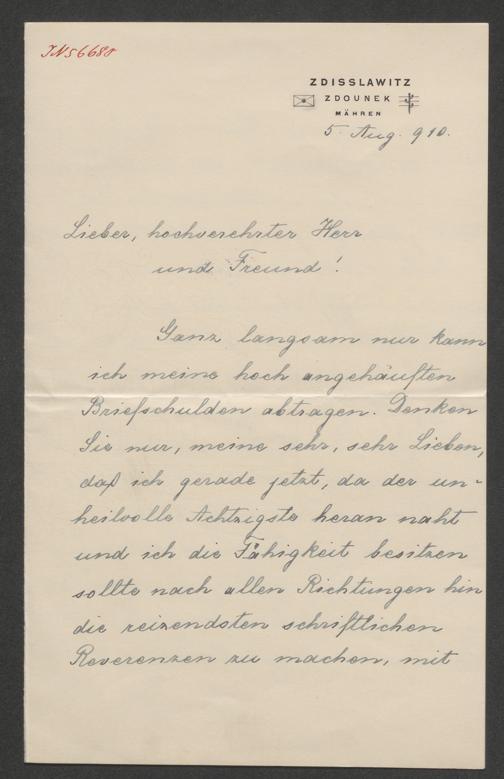 IN 56688
ZDISSLAWITZ
ZDOUNEK
MÄHREN
5. Aug. 910.
Lieber, hochverehrter Herr
und Freund!
Ganz langsam nur kann
ich meine hoch angehäuften
Briefschulden abtragen. Denken
Sie nur, meine sehr, sehr Lieben,
daß ich gerade jetzt, da der un-
heilvolle Achtzigste heran naht
und ich die Fähigkeit besitzen
sollte nach allen Richtungen hin
die reizendsten schriftlichen
Reverenzen zu machen, mit